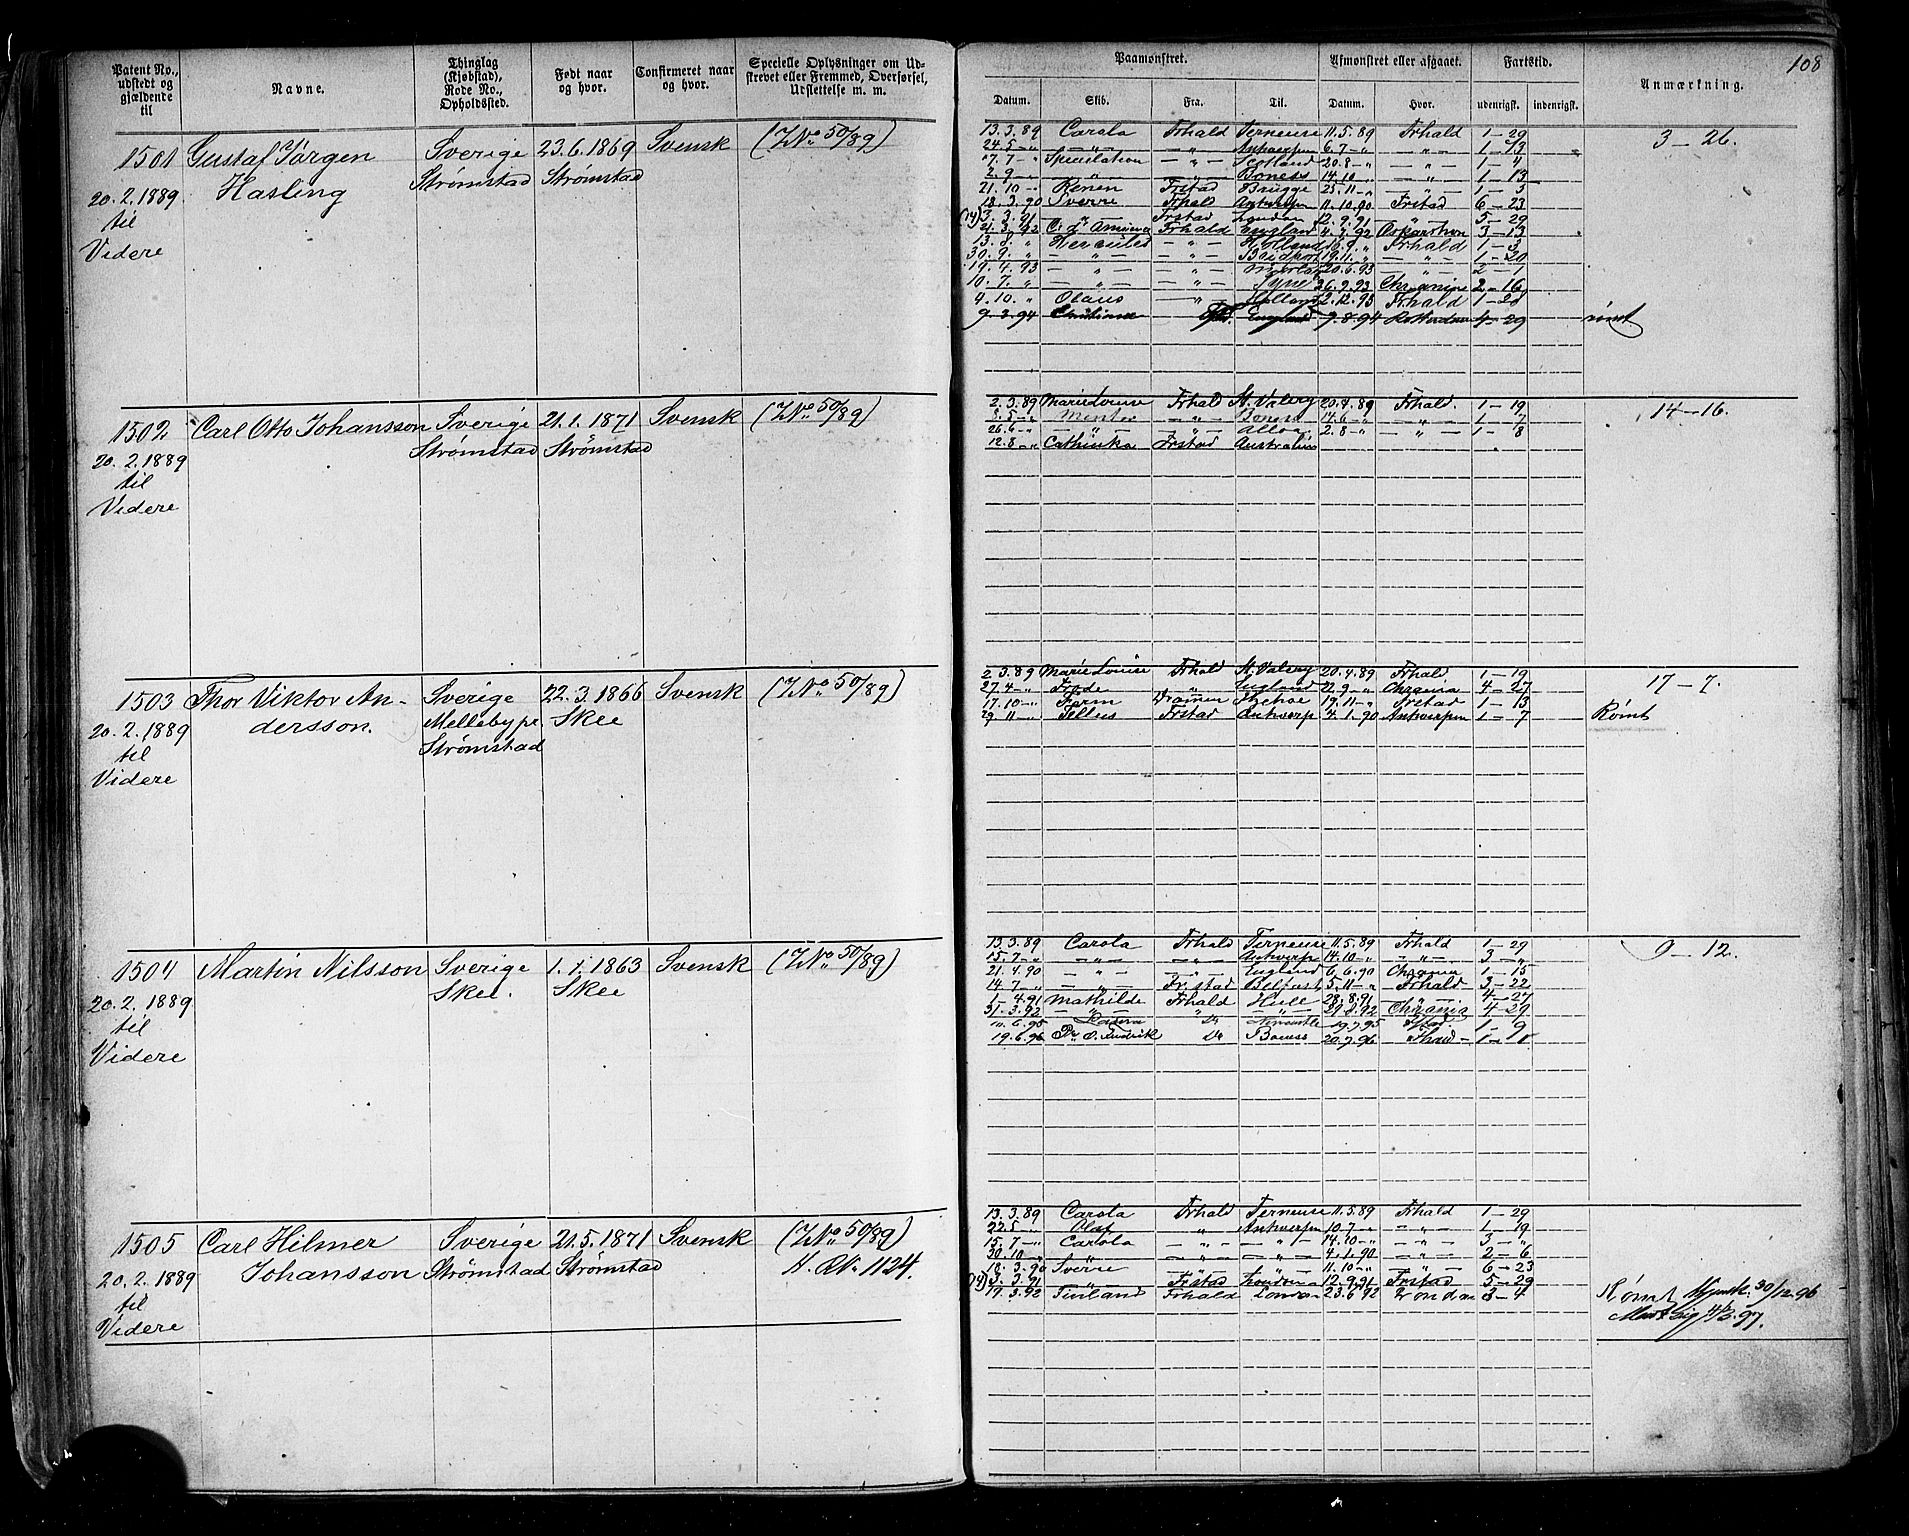 108
Patent No., udstedt og gjældende til
Navne.
Thinglag (Kjøbstad), Rode No., Opholdssted.
Født naar og hvor.
Confirmeret naar og hvor.
Specielle Oplysninger om Udskrevet eller Fremmed, Overførsel, Udslettelse m. m.
Paamønstret.
Afmønstret eller afgaaet.
Fartstid.
Anmærkning.
Datum. Skib. Fra. Til. Datum. Hvor. udenrigsk. indenrigsk.
1501 Gustaf Jörgen Sverige 23.6.1869 Svensk (ZNo 50/89)
Hasling Strømstad Strømstad
20.2.1889
til
Videre
13.3.89 Carola Frhald Terneuse 11.5.89 Frhald 1-29 3-26.
24.5-„ -„- -„- Antwerpen 6.7-„ -„- 1-13
17.7-„ Speculation -„- Scotland 20.8-„ -„- 1-4
2.9-„ „ -„- Boness 14.10-„ -„- 1-13
21.10-„ Frstad Brügge 25.11-„ -„- 1-3
18.3.90 Sverre Frhald Antwerpen 11.10.90 Frstad 6-23
(14) 3.3.91 „ Frstad London 12.9.91 „ 5-29
21.3.92 Frhald England 92 3-13
13.8.„ Hercules -„- Holland „ Frhald 1-3
30.9.„ -„- -„- 19.11.„ -„- 1-20
19.4.93 -„- -„- 20.6.93 -„- 2-1
10.7.„ -„- -„- Tyne 26.9.93 Chrania 2-16
4.10.„ Olaus -„- Holland 2.12.93 Frhald 1-28
9.3.94 Christiane England 9.8.94 Rotterdam 4-29 rømt
1502 Carl Otto Johansson Sverige 21.1.1871 Svensk (ZNo 50/89)
Strømstad Strømstad
20.2.1889
til
Videre
2.3.89 Marie Louise Frhald St. Valery 20.4.89 Frhald. 1-19 14-16.
5.5-„ Mentor „ Boness 14.6-„ „ 1-7
26.6-„ -„- „ Alloa 2.8-„ „ 1-8
12.8-„ Cathinka Frstad Australien
1503 Thor Viktor An- Sverige 22.3.1866 Svensk (ZNo 50/89)
dersson. Mellebypr Skee
Strømstad
20.2.1889
til
Videre
2.3.89 Marie Louise Frhald St. Valery 20.4.89 Frhald 1-19 17-7.
27.4-„ Frode „ England 22.9-„ Chrania 4-27
17.10-„ Drammen 19.11-„ Frstad 1-13
29.11-„ Tellus Frstad Antwerp 4.1.90 Antwerpen 1-7 Rømt
1504 Martin Nilsson Sverige 1.1.1863 Svensk (ZNo 50/89)
Skee. Skee
20.2.1889
til
Videre
13.3.89 Carola Frhald Terneuse 11.5.89 Frhald 1-29 9-12.
15.7-„ -„- -„- Antwerpe 14.10-„ -„- 3-„
21.4.90 -„- -„- England 6.6.90 Chrania 1-15
14.7-„ -„- Frstad Belfast 5.11-„ Frhald 3-22
1-4.91 Mathilde Frhald Hull 28.8.91 -„- 4-27
31.3.92 -„- „ -„- 29.8.92 Chrania 4-29
10.6.95 Do 19.7.95 1-9
19.6.96 Do Boness 20.7.96 1-1
1505 Carl Hilmer Sverige 21.5.1871 Svensk (ZNo 50/89)
Johansson Strømstad Strømstad A. RNo 1124.
20.2.1889
til
Videre
13.3.89 Carola Frhald Terneuse 11.5.89 Frhald 1-29
22.5-„ Olaf „ Antwerpen 10.7-„ -„- 1-19
15.7-„ Carola -„- -„- 14.10-„ -„- 3-„
30.10-„ „ -„- -„- 4.1.90 -„- 2-6
18.3.90 Sverre -„- -„- 11.10-„ -„- 6-23
(14) 3.3.91 -„- Frstad London 12.9.91 Frstad 5-29
17.3.92 Finland Frhald London 23.6.92 London 3-4 Rømt 30/12.96
97.